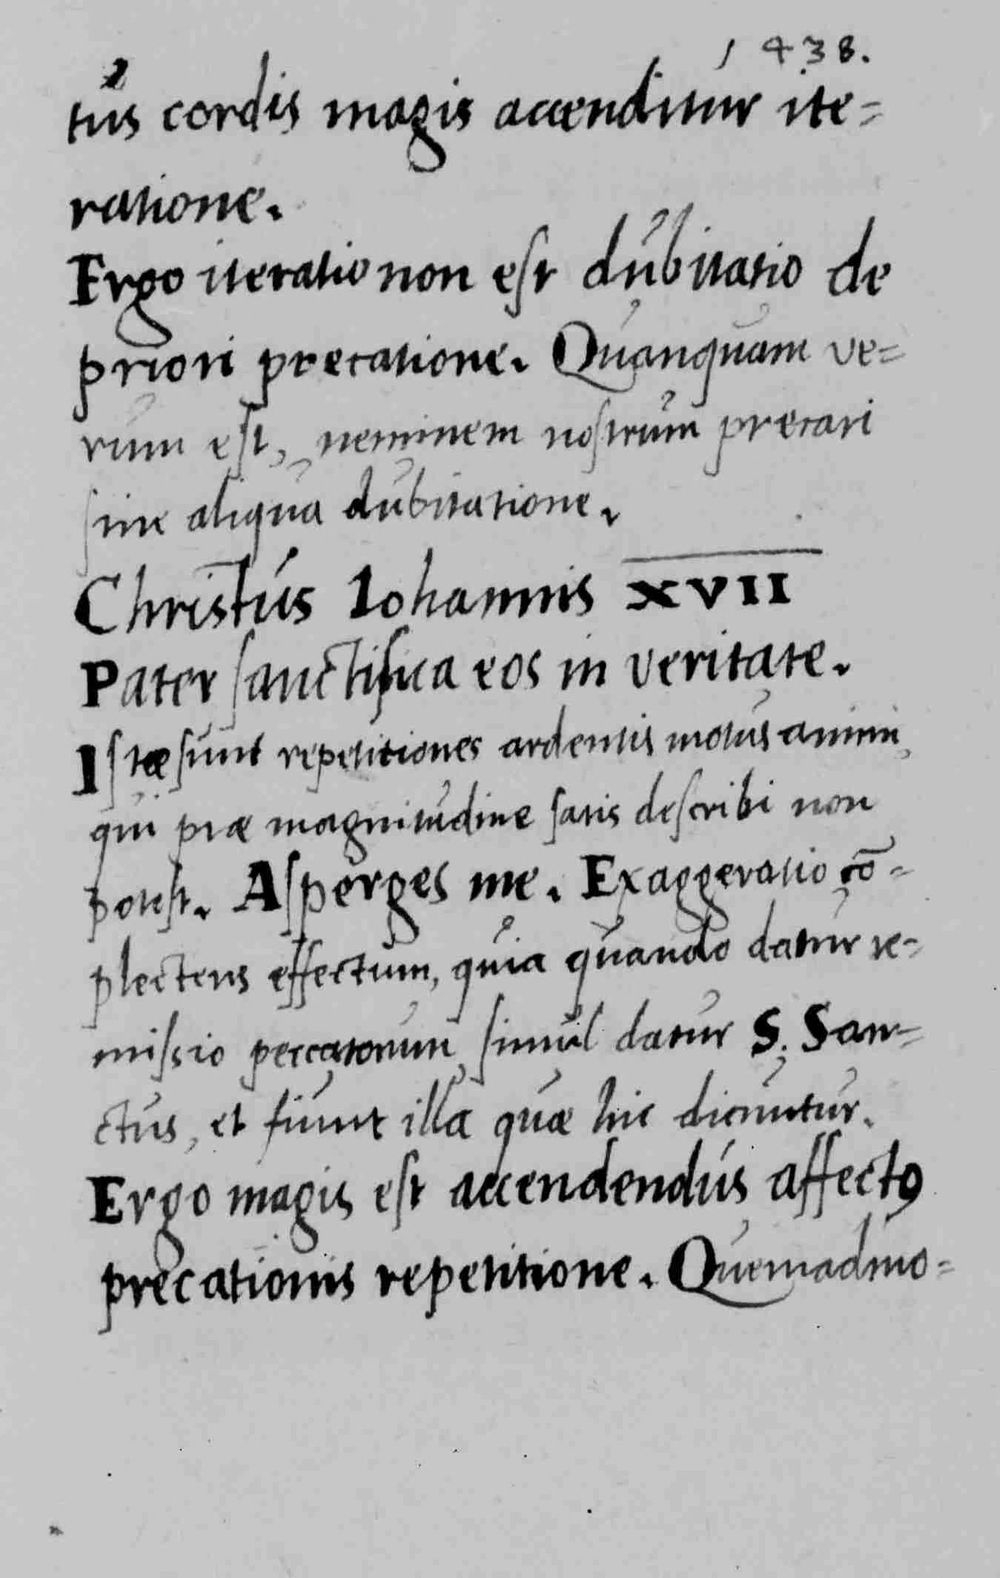 1438.
tus cordis magis accenditur ite=
ratione.
Ergo iteratio non est dubitatio de
priori precatione. Quanquam ve=
rum est, neminem nostrum precari
sine aliqua dubitatione.
Christus Iohannis XVII
Pater sanctifica eos in veritate.
Istæ sunt repetitiones ardentis motus animi,
qui præ magnitudine satis describi non
potest. Asperges me. Exaggeratio cō=
plectens effectum, quia quando datur re=
missio peccatorum, simul datur S. San=
ctus, et fiunt illa quæ hic dicuntur.
Ergo magis est accendendus affectꝰ
precationis repetitione. Quemadmo=